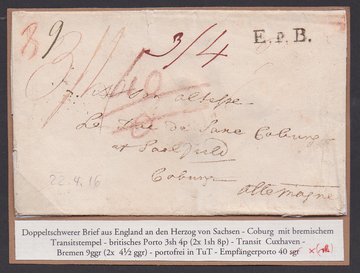 39
3/4
E. P. B.
A Son Altesse
Le Duc de Saxe Coburg
et Saalfeld
Coburg
Allemagne
22.4.16
Doppeltschwerer Brief aus England an den Herzog von Sachsen - Coburg mit bremischem
Transitstempel - britisches Porto 3sh 4p (2x 1sh 8p) - Transit Cuxhaven -
Bremen 9ggr (2x 4½ ggr) - portofrei in TuT - Empfängerporto 40 sgr